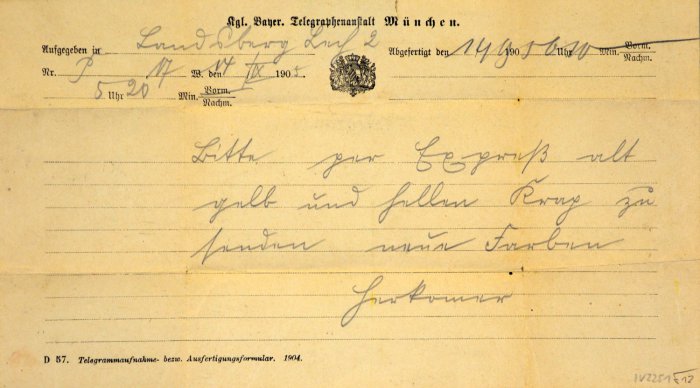 Kgl. Bayer. Telegraphenanstalt München.
Aufgegeben in Landsberg Lech 2
Abgefertigt den 14/9 1905 6 Uhr 10 Min. Vorm. Nachm.
Nr. P 17 W. den 14 IX 1905.
5 Uhr 20 Min. Vorm. Nachm.
Bitte per Expreß alt
gelb und hellen Krap zu
senden neue Farben
Herkomer
D 57. Telegrammaufnahme- bezw. Ausfertigungsformular. 1904.